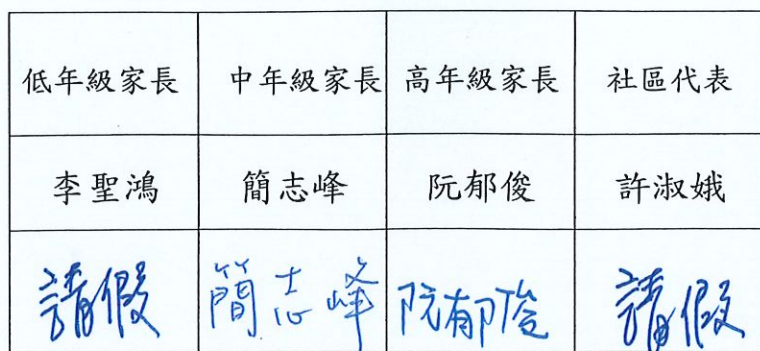 低年級家長 中年級家長 高年級家長 社區代表
李聖鴻 簡志峰 阮郁俊 許淑娥
請假 簡志峰 阮郁俊 請假